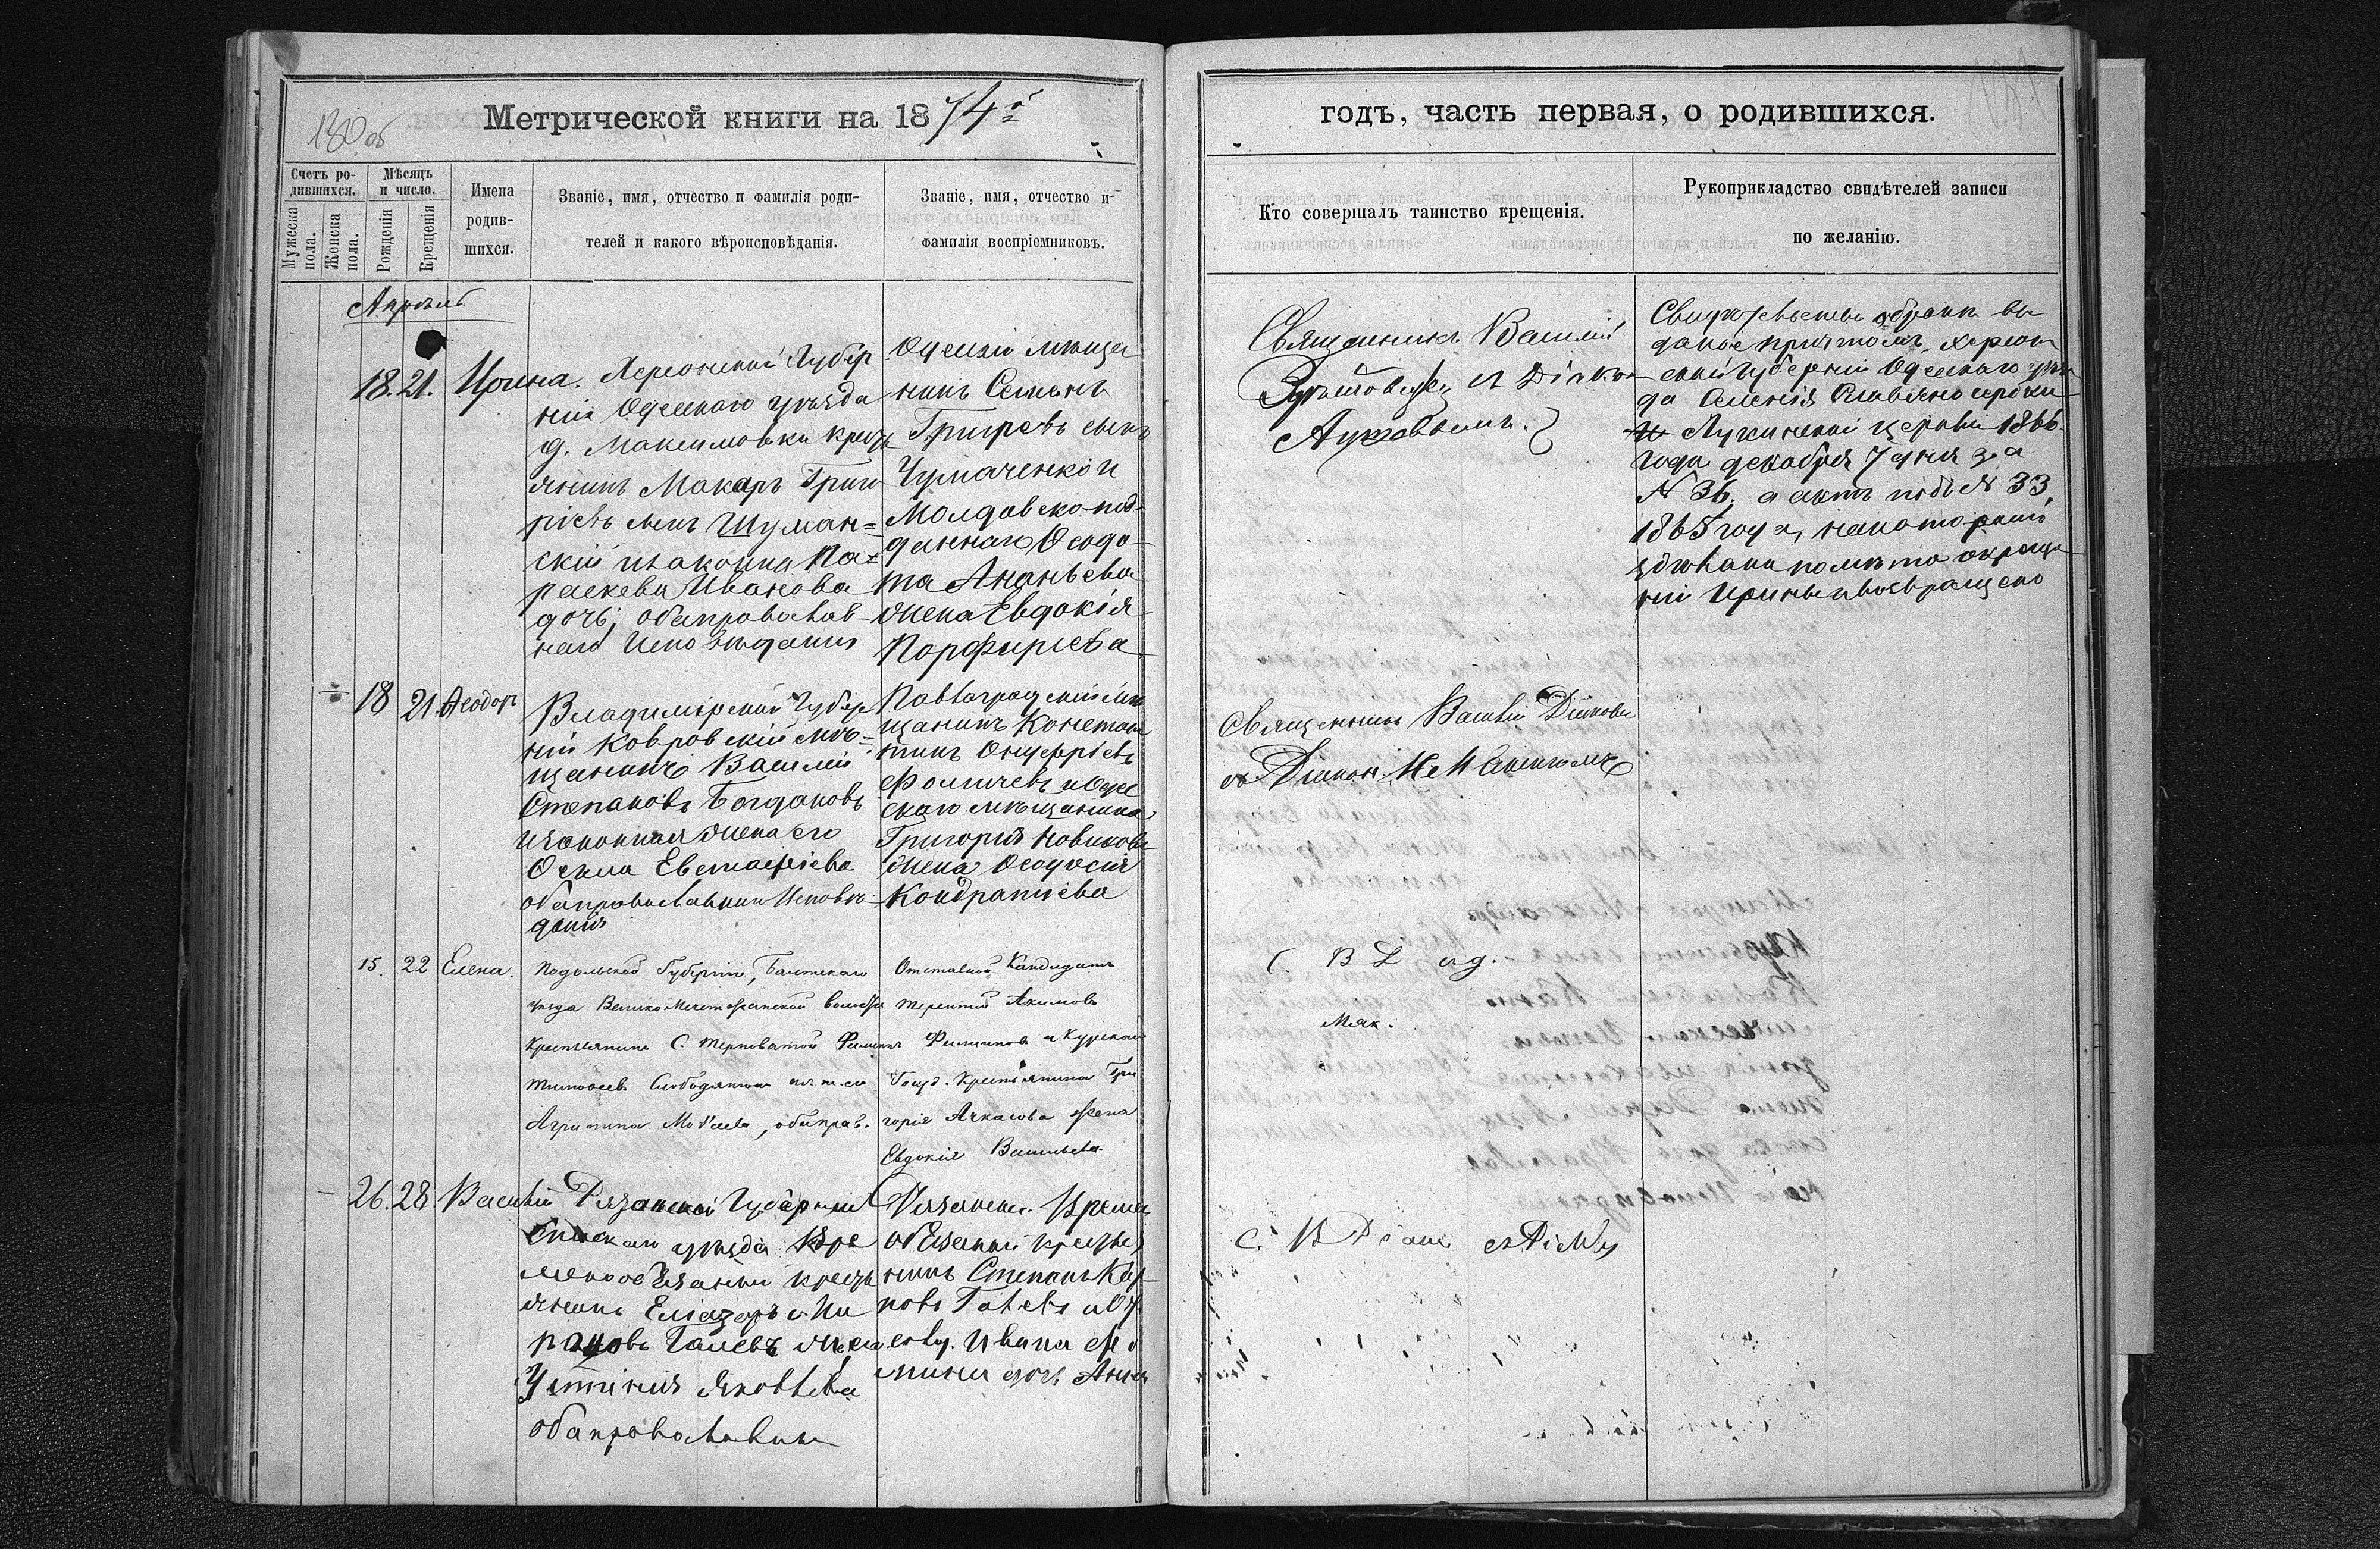 130 об
Метрической книги на 1874й
годъ, часть первая, о родившихся.
Счетъ ро-
дившихся.
Мужеска пола.
Женска пола.
Мѣсяцъ
и число.
Рожденія
Крещенія
Имена
родив-
шихся.
Званіе, имя, отчество и фамилія роди-
телей и какого вѣроисповѣданія.
Званіе, имя, отчество и
фамилія воспріемниковъ.
Кто совершалъ таинство крещенія.
Рукоприкладство свидѣтелей записи
по желанію.
Апрѣль
18. 21. Ирина.
Херсонской Губер
ніи Одесскаго уѣзда
д. Максимовки крес
янинъ Макаръ Григо
рьевъ сынъ Шуман=
скій и законная Па=
раскева Иванова
дочь, оба православ-
наго Исповѣданія
Одескій мѣща
нинъ Семенъ
Григорьевъ сынъ
Чумаченко и
Молдавско-под-
даннаго Феодо
та Ананьева
жена Евдокія
Порфирьева
Священникъ Василій
и Діако
Свидѣтельство о бракѣ вы
даное причтомъ Херсон
ской губерніи Одескаго уѣз
да
церкви 1866
года декабря 7 дня за
№ 36. а актъ подъ № 33,
1865 года, на которомъ
здѣлана помѣта о креще
ніи Ирины и возвращено
18 21 Феодоръ
Владимірской Губер
ніи Ковровскій мѣ=
щанинъ Василій
Степановъ Богдановъ
и законная жена его
Фекла Евстафіева
оба православнаго Исповѣ
данія
Павлоградскій мѣ
щанинъ Констан
тинъ Онуфріевъ
Фомичевъ и Одес
скаго мѣщанина
Григорія Новикова
жена Феодосія
Кондратіева
Священникъ Василій
съ Діакон
15. 22 Елена.
Подольской Губерніи, Балтскаго
уѣзда Велико Мечетнянской волости
Крестьянинъ С. Терноватой Филипъ
Тимофеевъ Слободянюкъ
Агрипина Моѵсеева, оба прав.
Отставной Кандидатъ
Терентій Акимовъ
Филиповъ и Курской
Госуд. Крестьянина Гри
горія Ачкасова жена
Евдокія Васильева.
С. В
26. 28. Василій
Рязанской Губерніи
Спаскаго уѣзда Вре
меннообязанный крест
янинъ Еліазаръ Ми
роновъ Галевъ жена
Устинія Яковлева
оба православные
Рязанской Времен
обязаный крестья
нинъ Степанъ Кар
повъ Галевъ и
Ивана
мина дочь Анна
С. В